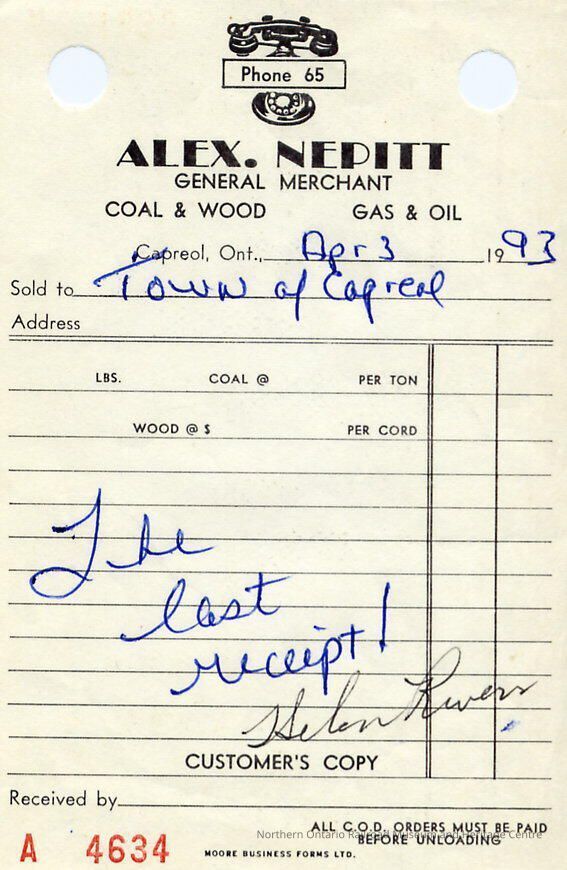 Phone 65
ALEX. NEPITT
GENERAL MERCHANT
COAL & WOOD GAS & OIL
Capreol, Ont., Apr 3 1993
Sold to Town of Capreol
Address
LBS. COAL @ PER TON
WOOD @ $ PER CORD
The
last
receipt!
Helen Rivers
CUSTOMER'S COPY
Received by
ALL C.O.D. ORDERS MUST BE PAID
Northern Ontario Railroad Museum and Heritage Centre
BEFORE UNLOADING
A 4634
MOORE BUSINESS FORMS LTD.